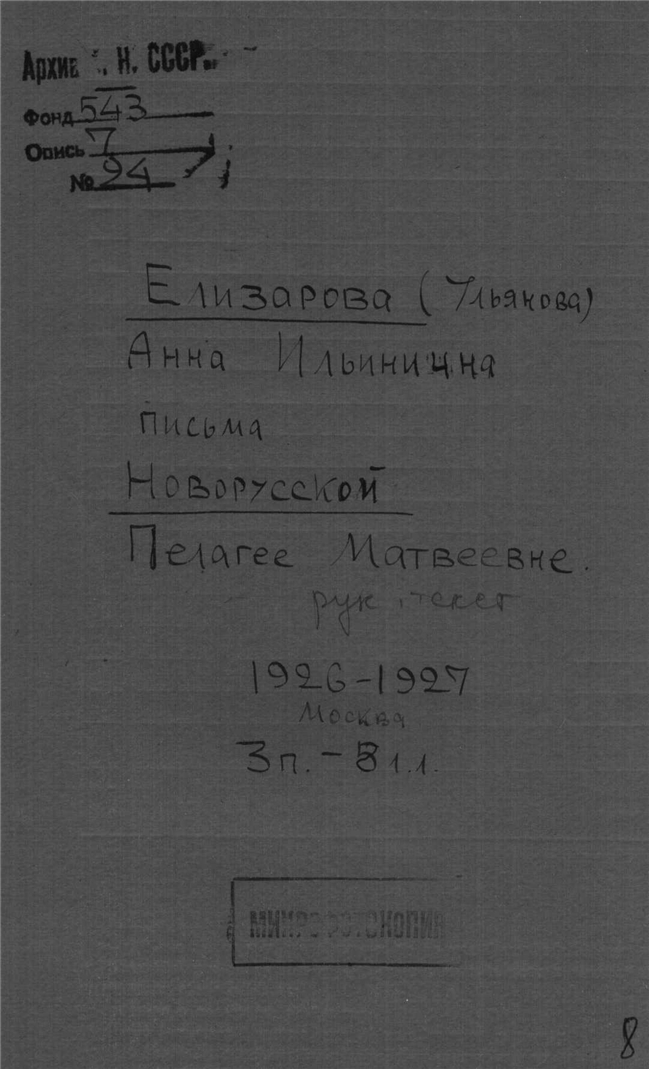 Архив А. Н. СССР.
Фонд 543
Опись 7
№ 94
Елизарова (Ульянова)
Анна Ильинична
письма
Новорусской
Пелагее Матвеевне.
рук. текст
1926-1927
Москва
3 п. - 8 л.л.
МИКРОФОТОКОПИЯ
8